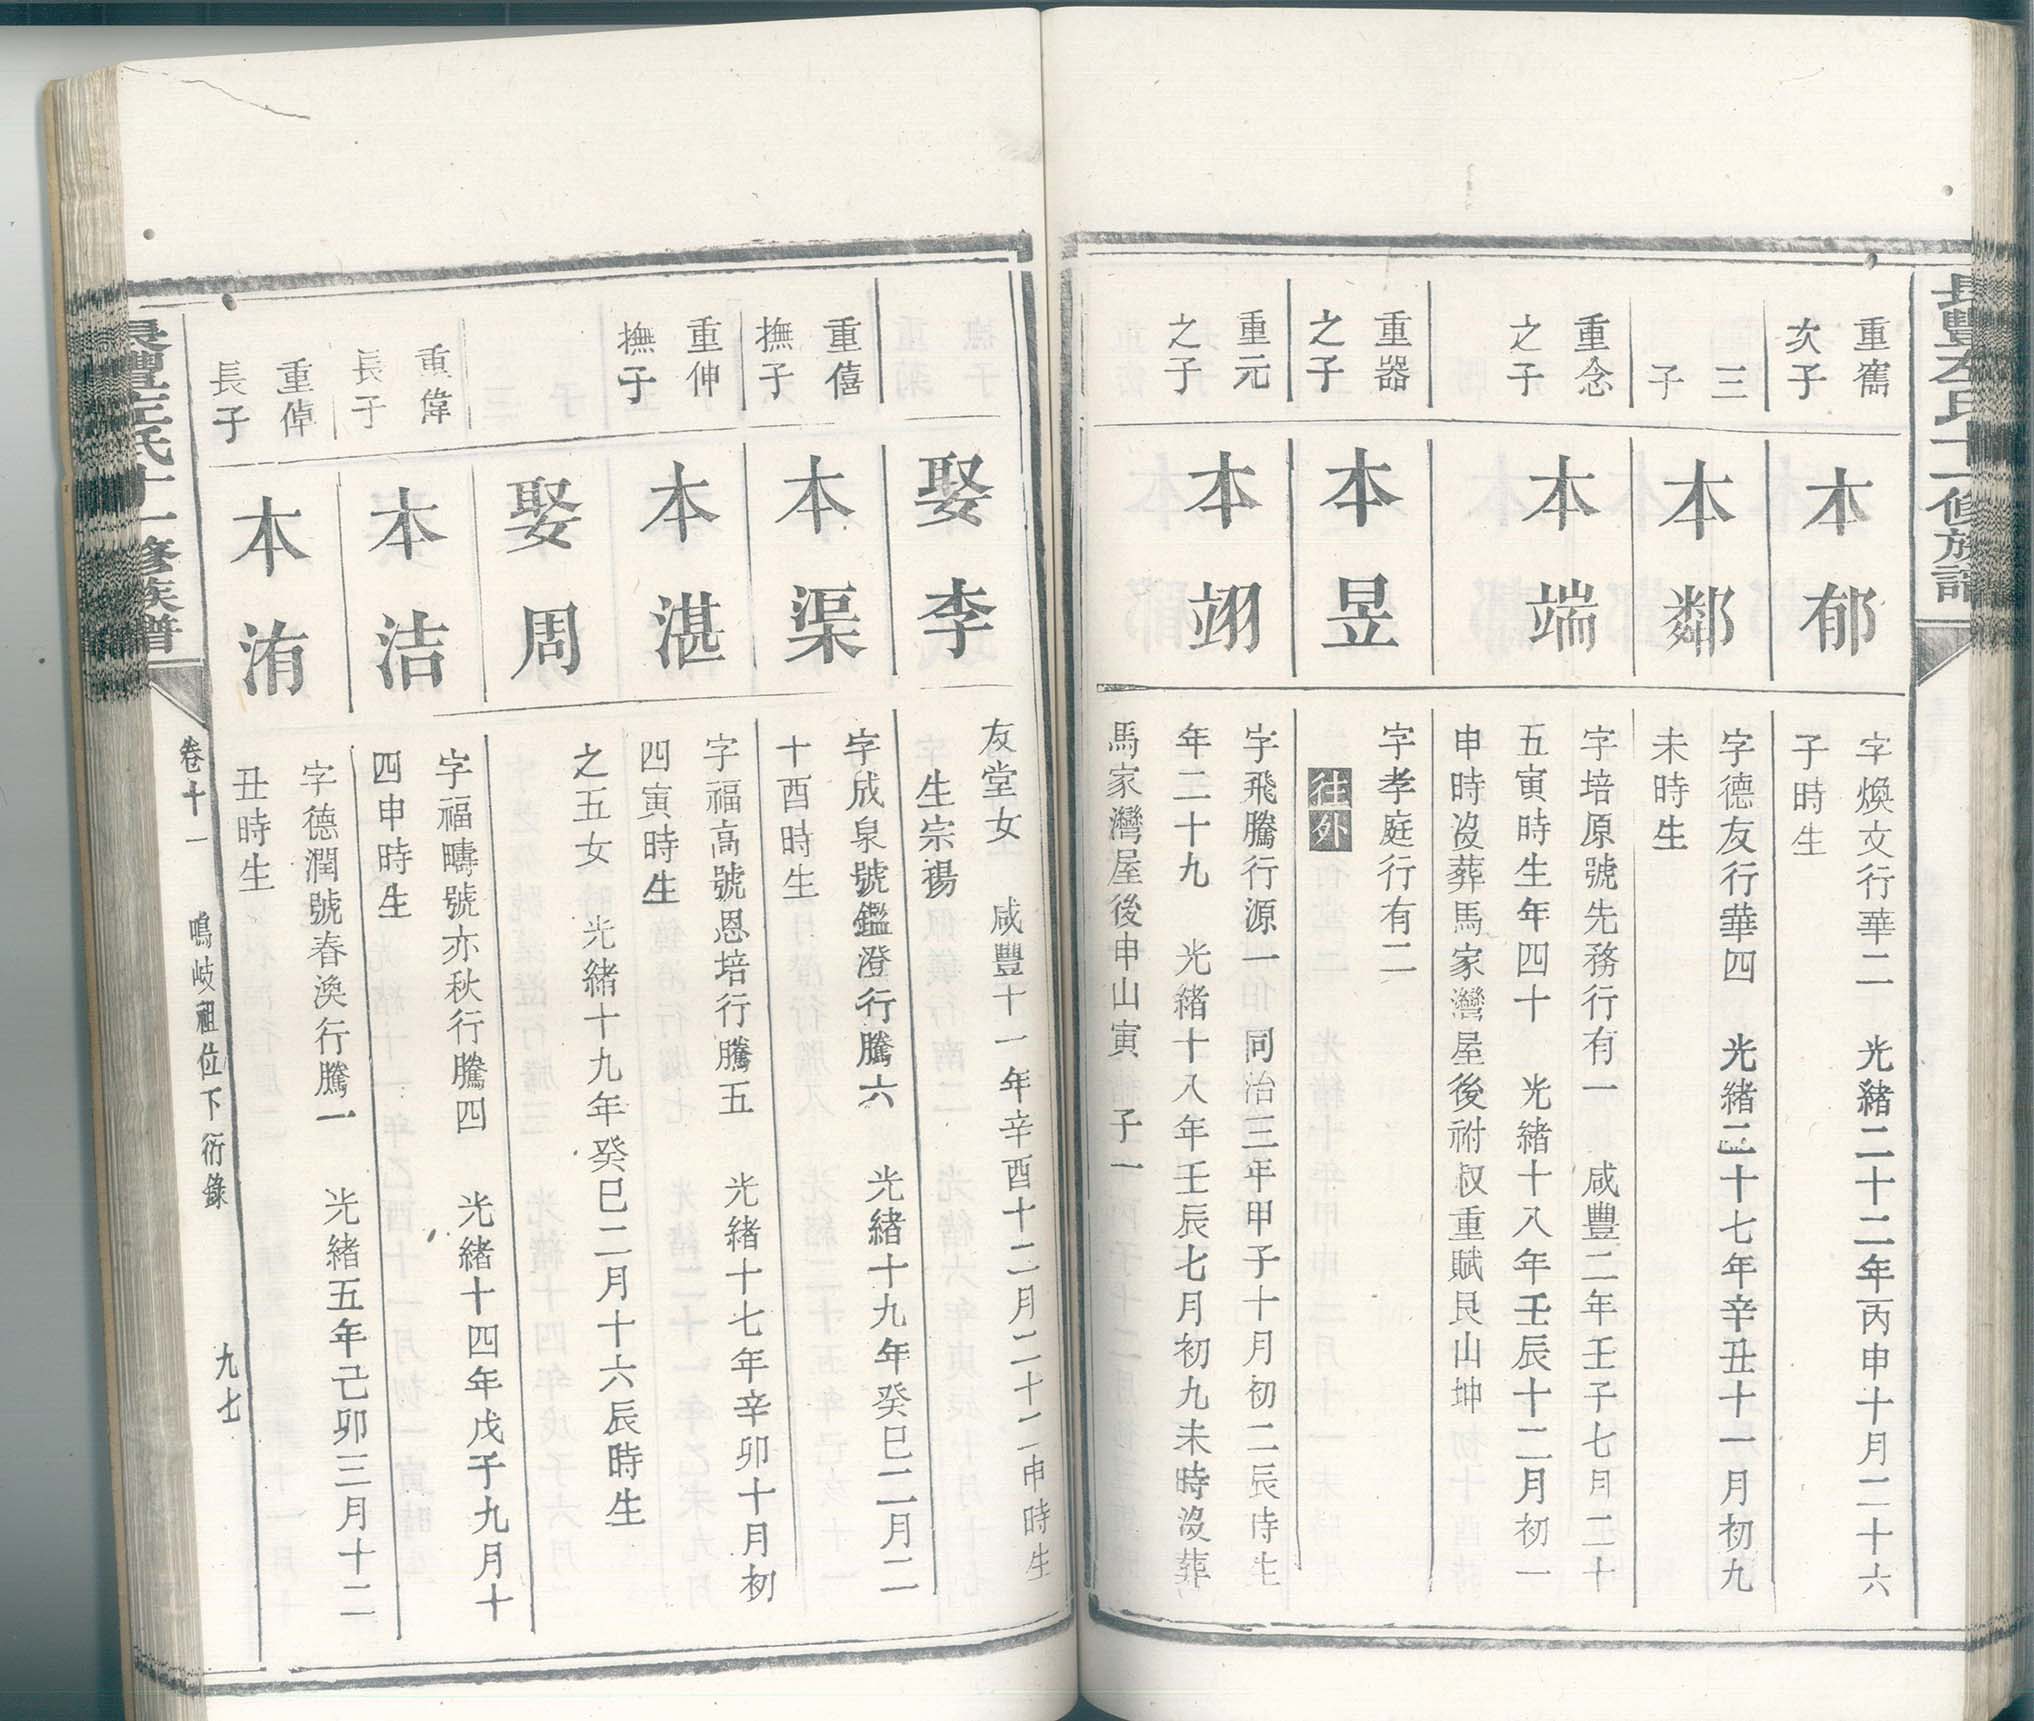 長豐左氏十一修族譜
重嶲
次子
本郁
字煥文行華二 光緒二十二年丙申十月二十六
子時生
三
子
本鄰
字德友行華四 光緒二十七年辛丑十一月初九
未時生
重念
之子
本端
字培原號先務行有一 咸豐二年壬子七月二十
五寅時生年四十 光緒十八年壬辰十二月初一
申時沒葬馬家灣屋後祔叔重賦艮山坤
重器
之子
本昱
字孝庭行有二
往外
重元
之子
本翊
字飛騰行源一 同治三年甲子十月初二辰時生
年二十九 光緒十八年壬辰七月初九未時沒葬
馬家灣屋後申山寅 子一
娶李
友堂女 咸豐十一年辛酉十二月二十二申時生
生宗裼
重僖
撫子
本渠
字成泉號鑑澄行騰六 光緒十九年癸巳二月二
十酉時生
重伸
撫子
本湛
字福高號恩培行騰五 光緒十七年辛卯十月初
四寅時生
娶周
之五女 光緒十九年癸巳二月十六辰時生
重偉
長子
本洁
字福疇號亦秋行騰四 光緒十四年戊子九月十
四申時生
重倬
長子
本洧
字德潤號春渙行騰一 光緒五年己卯三月十二
丑時生
長豐左氏十一修族譜
卷十一 鳴岐祖位下衍錄 九七